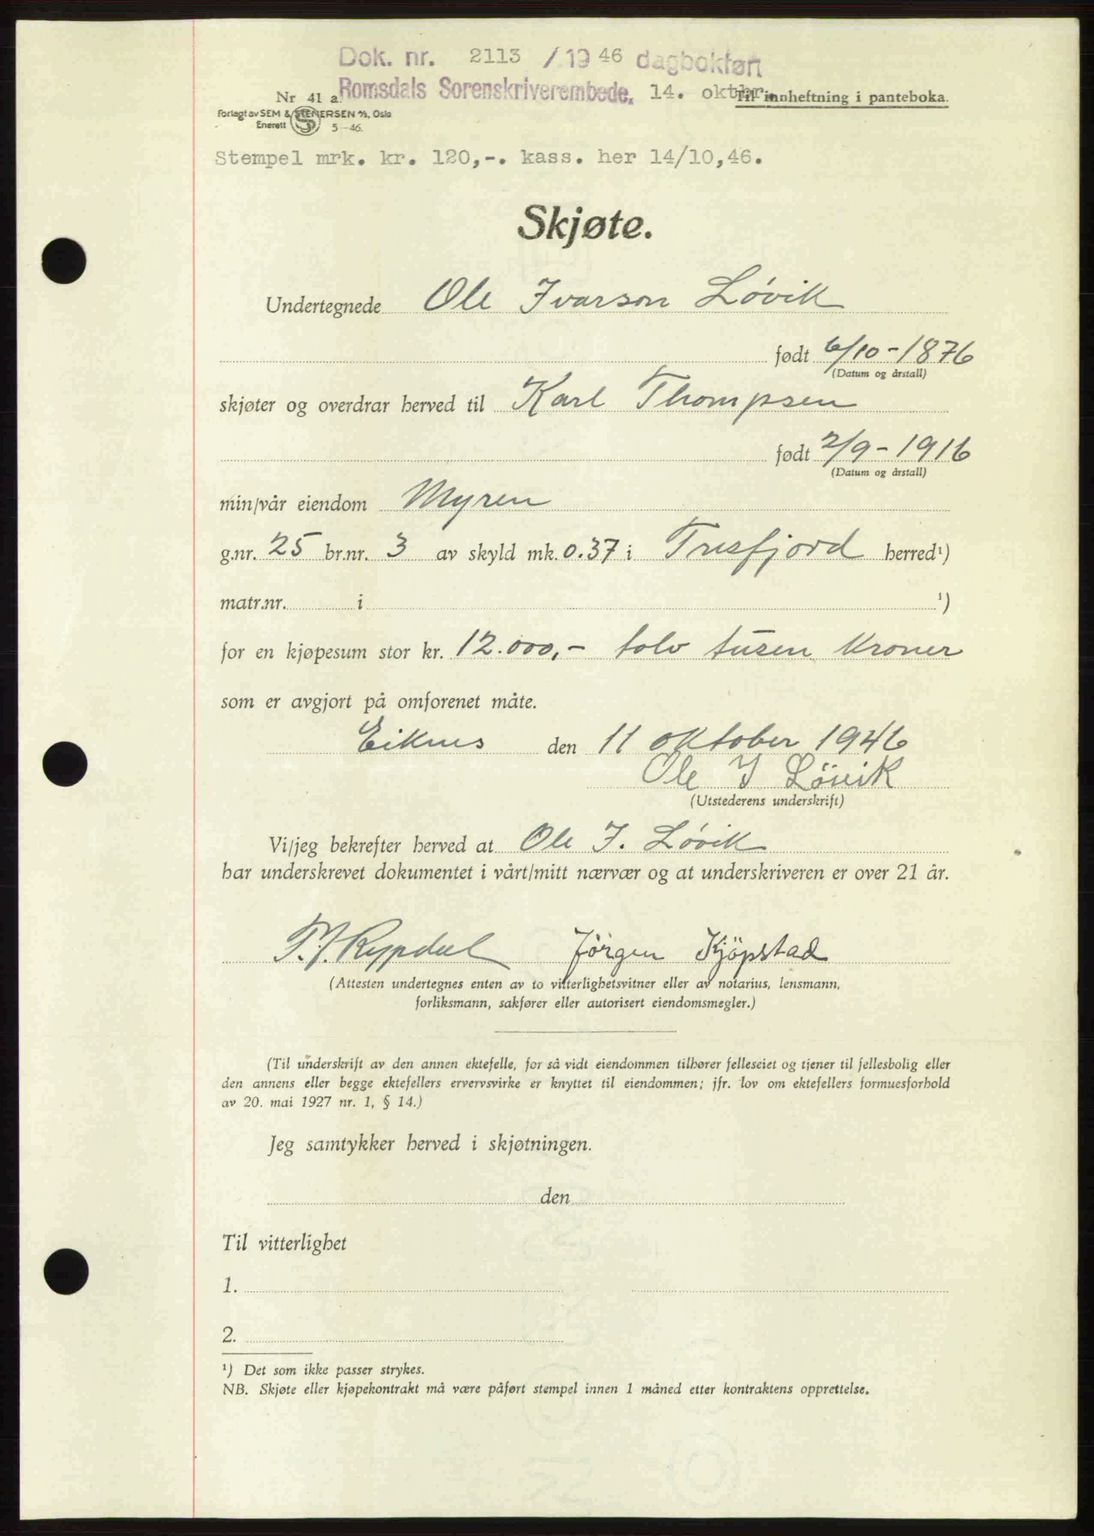 Dok. nr. 2113 / 19 46 dagbokført
Romsdals Sorenskriverembede, 14. oktbr.
Nr 41 a Til innheftning i panteboka.
Forlagt av SEM & STENERSEN A/S, Oslo
Enerett 5-46.
Stempel mrk. kr. 120,-. kass. her 14/10,46.
Skjøte.
Undertegnede Ole Ivarson Løvik
født 6/10-1876
(Datum og årstall)
skjøter og overdrar herved til Karl Thompsen
født 2/9-1916
(Datum og årstall)
min/vår eiendom Myren
g.nr. 25 br.nr. 3 av skyld mk. 0.37 i Tresfjord herred¹)
matr.nr. i ¹)
for en kjøpesum stor kr. 12.000,- tolv tusen kroner
som er avgjort på omforenet måte.
Eiknes den 11 oktober 1946
Ole I Løvik
(Utstederens underskrift)
Vi/jeg bekrefter herved at Ole I. Løvik
har underskrevet dokumentet i vårt/mitt nærvær og at underskriveren er over 21 år.
T. J. Rypdal Jörgen Kjöpstad
(Attesten undertegnes enten av to vitterlighetsvitner eller av notarius, lensmann,
forliksmann, sakfører eller autorisert eiendomsmegler.)
(Til underskrift av den annen ektefelle, for så vidt eiendommen tilhører felleseiet og tjener til fellesbolig eller
den annens eller begge ektefellers ervervsvirke er knyttet til eiendommen; jfr. lov om ektefellers formuesforhold
av 20. mai 1927 nr. 1, § 14.)
Jeg samtykker herved i skjøtningen.
den
Til vitterlighet
1.
2.
¹) Det som ikke passer strykes.
NB. Skjøte eller kjøpekontrakt må være påført stempel innen 1 måned etter kontraktens opprettelse.